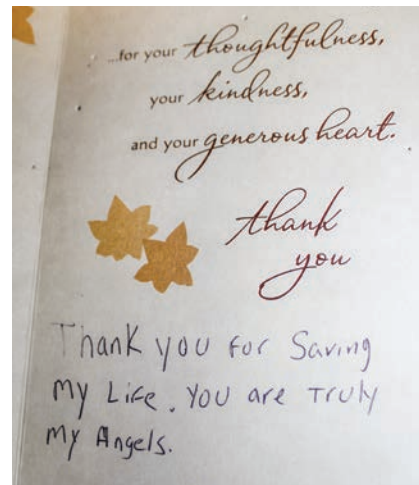 ...for your thoughtfulness,
your kindness,
and your generous heart.
thank
you
Thank you for Saving
My Life. You are Truly
My Angels.